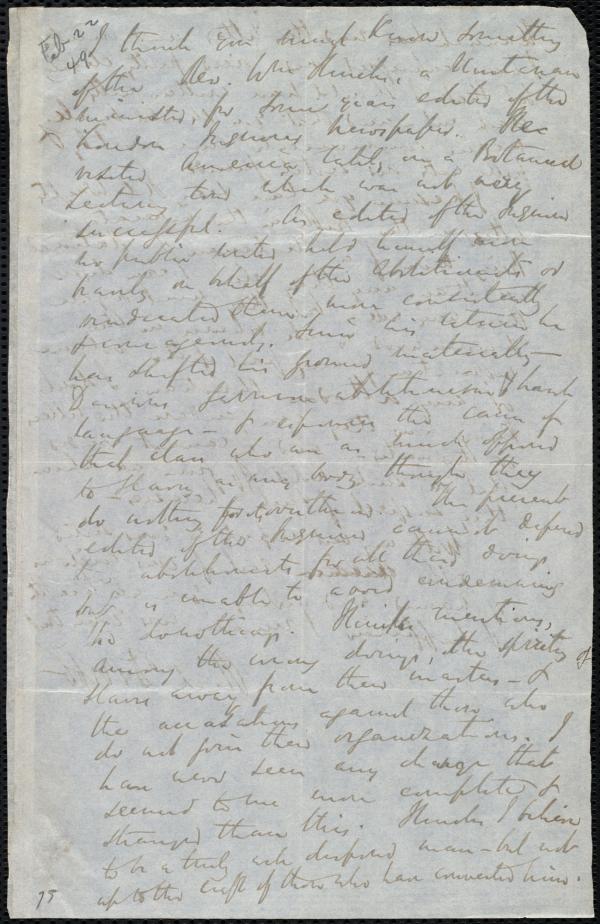 Feb. 22
49
I think you might know something
of the Rev. Wm Hincks, a Unitarian
minister, for some years editor of the
London Inquirer newspaper. He
visited America lately on a Botanical
lecturing tour which was not very
successful. As editor of the Inquirer
no public writer held himself more
on behalf of the abolitionists or
vindicated them more consistently
& courageously. Since his return he
has shifted his ground materially —
language — & espouses the cause of
that class who are as much opposed
to slavery as any body though they
do nothing for its overthrow. The present
editor of the Inquirer cannot defend
the abolitionists for all their doings
but is unable to avoid condemning
the donothings. Hincks mentions,
among the wrong doings, the spiriting of
slaves away from their masters — &
the accusations against those who
do not join their organizations. I
have never seen any change that
seemed to me more complete &
stranger than this. Hincks I believe
to be a truly well disposed man — but not
up to the craft of those who have converted him.
75